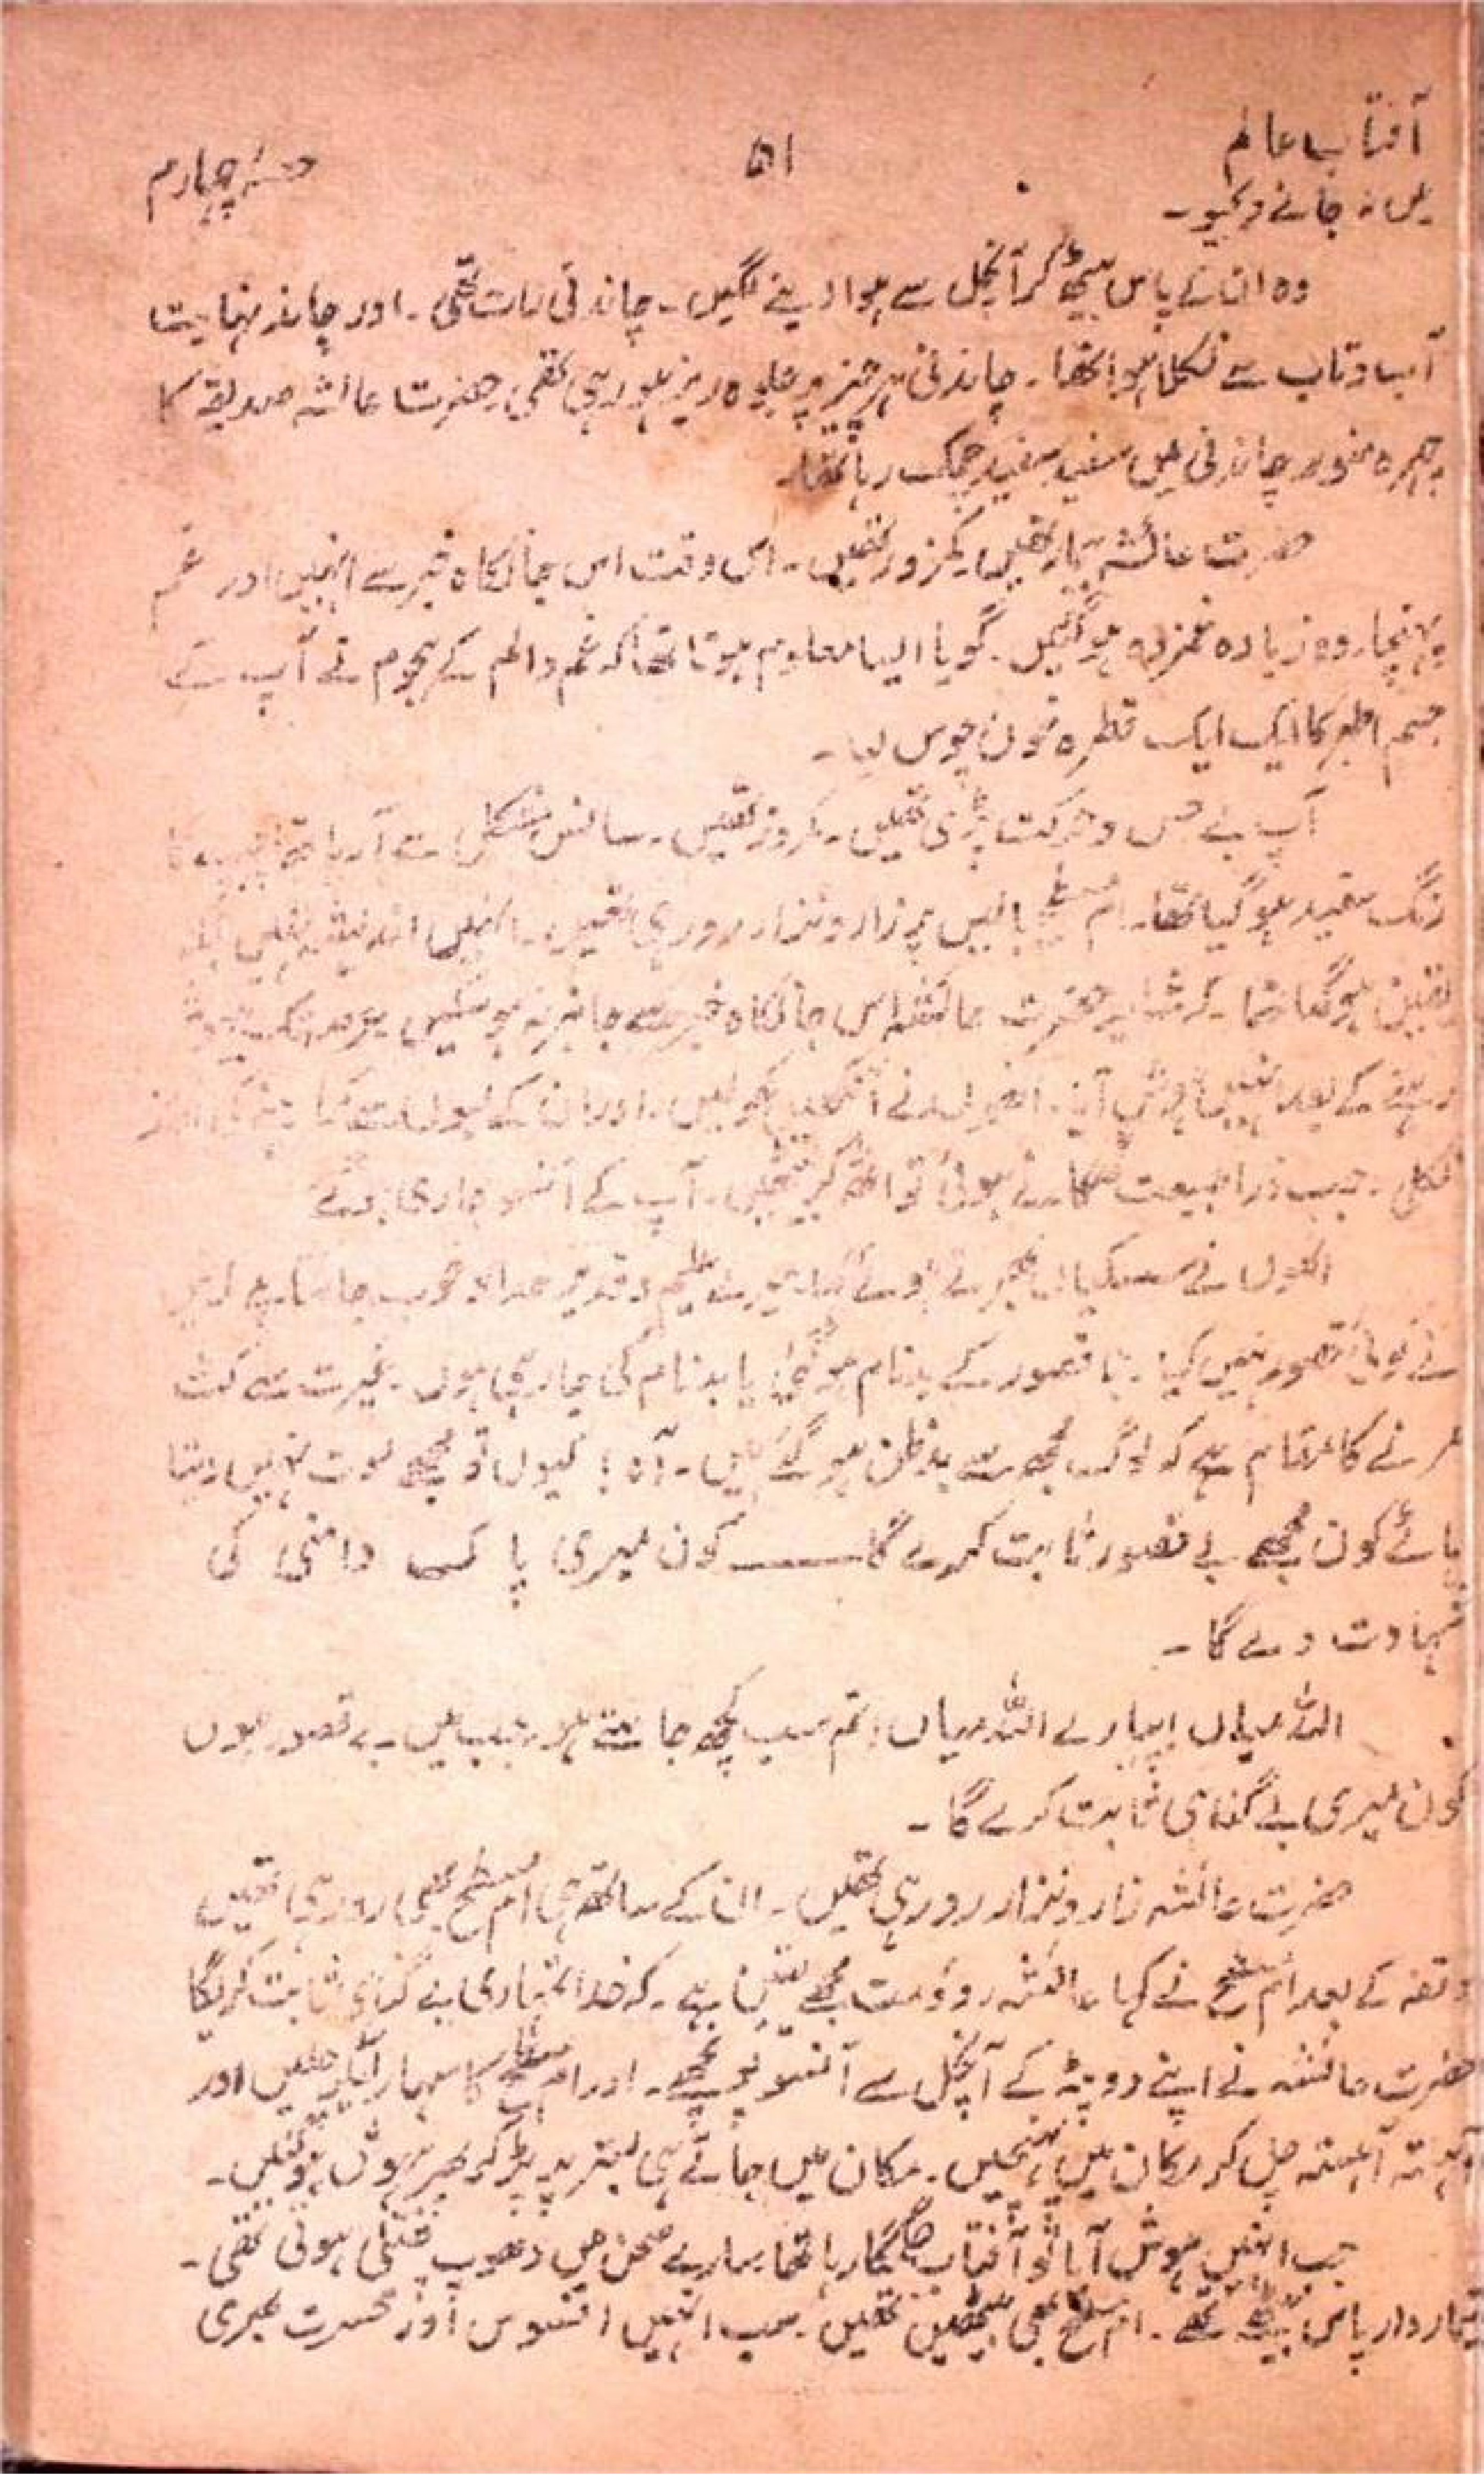 آفتاب عالم ۵۱ حصہ چہارم
میں نہ جانے دیجیو۔
وہ ان کے پاس بیٹھ کر آنچل سے ہوا دینے لگیں۔ چاندنی رات تھی۔ اور چاند نہایت
آب و تاب سے نکلا ہوا تھا۔ چاندنی ہر چیز پر جلوہ ریز ہو رہی تھی، حضرت عائشہ صدیقہ کا
چہرہ منور چاندنی میں سفید سفید چمک رہا تھا۔
حضرت عائشہ بیمار تھیں، کمزور تھیں۔ اس وقت اس جانکاہ خبر سے انہیں اور غم
پہنچا، وہ زیادہ غمزدہ ہوگئیں۔ گویا ایسا معلوم ہوتا تھا کہ غم و الم کے ہجوم نے آپ کے
جسم اطہر کا ایک ایک قطرہ خون چوس لیا۔
آپ بے حس و حرکت پڑی تھیں۔ کمزور تھیں۔ سانس مشکل سے آ رہا تھا چہرے کا
رنگ سفید ہو گیا تھا۔ ام مسطح بالیں پر زار و نزار رو رہی تھیں۔ انہیں اندیشہ نہیں بلکہ
یقین ہوگیا تھا۔ کہ شاید حضرت عائشہ اس جانکاہ خبر سے جانبر نہ ہو سکیں، عرصہ تک بیہوش
رہنے کے بعد انہیں ہوش آیا۔ انہوں نے آنکھیں کھولیں۔ اور ان کے لبوں سے
نکلی۔ جب ذرا طبیعت ٹھکانے ہوئی تو اٹھ کر بیٹھیں۔ آپ کے آنسو جاری ہوگئے
انہوں نے سسکیاں بھرتے ہوئے کہا، علیم و قدیر خدا تو خوب جانتا ہے کہ میں
نے کوئی قصور نہیں کیا۔ نا قصور کے بدنام ہوگئی یا بدنام کی جا رہی ہوں۔ غیرت سے کٹ
مرنے کا مقام ہے کہ لوگ مجھ سے بدظن ہو گئے ہیں۔ آہ! کیوں تو مجھے موت نہیں دیتا
ہائے کون مجھے بے قصور ثابت کرے گا——کون میری پاک دامنی کی
شہادت دے گا۔
اللہ میاں! پیارے اللہ میاں! تم سب کچھ جانتے ہو، جب میں بے قصور ہوں
کون میری بے گناہی ثابت کرے گا۔
حضرت عائشہ زار و نزار رو رہی تھیں۔ ان کے ساتھ ہی ام مسطح بھی رو رہی تھیں
وقفہ کے بعد ام مسطح نے کہا، عائشہ روؤ مت مجھے یقین ہے۔ کہ خدا تمہاری بے گناہی ثابت کریگا
حضرت عائشہ نے اپنے دوپٹہ کے آنچل سے آنسو پونچھے۔ اور ام مسطح کا سہارا لیکر اٹھیں اور
آہستہ آہستہ چل کر مکان میں پہنچیں۔ مکان میں جاتے ہی بستر پر پڑ کر پھر بیہوش ہو گئیں۔
جب انہیں ہوش آیا تو آفتاب جگمگا رہا تھا سارے صحن میں دھوپ پھیلی ہوئی تھی۔
تیماردار پاس بیٹھے تھے۔ ام مسطح بھی بیٹھیں تھیں۔ سب انہیں افسوس اور حسرت بھری